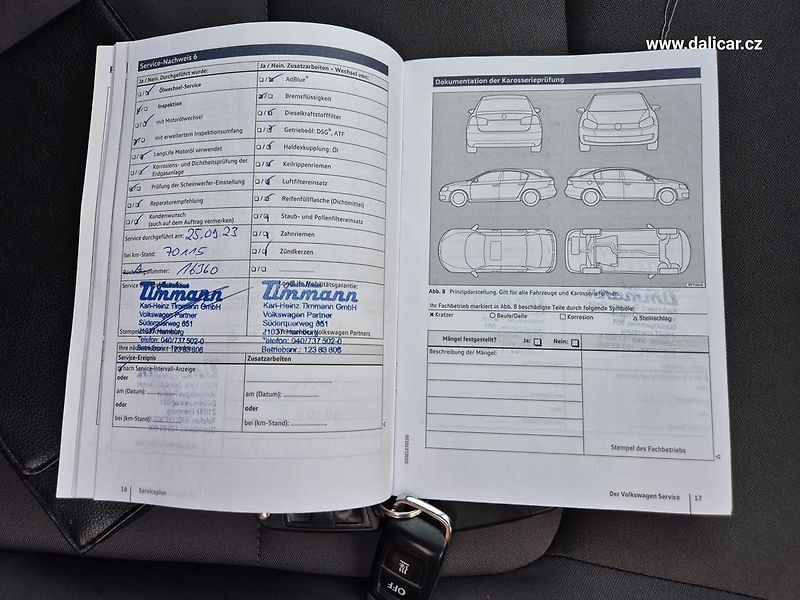 www.dalicar.cz
Service-Nachweis 6
Ja / Nein. Durchgeführt wurde:
Ölwechsel-Service
Inspektion
mit Motorölwechsel
mit erweitertem Inspektionsumfang
LongLife Motoröl verwendet
Korrosions- und Dichtheitsprüfung der
Erdgasanlage
Prüfung der Scheinwerfer-Einstellung
Reparaturempfehlung
Kundenwunsch
(auch auf dem Auftrag vermerken)
Service durchgeführt am: 25.09.23
bei km-Stand: 70115
16960
Ja / Nein. Zusatzarbeiten – Wechsel von:
AdBlue®
Bremsflüssigkeit
Dieselkraftstofffilter
Getriebeöl: DSG®, ATF
Haldexkupplung: Öl
Keilrippenriemen
Luftfiltereinsatz
Reifenfüllflasche (Dichtmittel)
Staub- und Pollenfiltereinsatz
Zahnriemen
Zündkerzen
Timmann
Karl-Heinz Timmann GmbH
Volkswagen Partner
Süderquerweg 651
21037 Hamburg
Telefon: 040/737 502-0
Betriebsnr.: 123 63 606
Timmann
Karl-Heinz Timmann GmbH
Volkswagen Partner
Süderquerweg 651
21037 Hamburg
Telefon: 040/737 502-0
Betriebsnr.: 123 63 606
Service-Ereignis
nach Service-Intervall-Anzeige
oder
am (Datum):
oder
bei (km-Stand):
Zusatzarbeiten
am (Datum):
oder
bei (km-Stand):
16 Serviceplan
Dokumentation der Karosserieprüfung
Abb. 8 Prinzipdarstellung. Gilt für alle Fahrzeuge und Karosserieformen.
Ihr Fachbetrieb markiert in Abb. 8 beschädigte Teile durch folgende Symbole:
✕ Kratzer ○ Beule/Delle □ Korrosion △ Steinschlag
Mängel festgestellt? Ja: Nein:
Beschreibung der Mängel:
Stempel des Fachbetriebs
Der Volkswagen Service 17
OFF